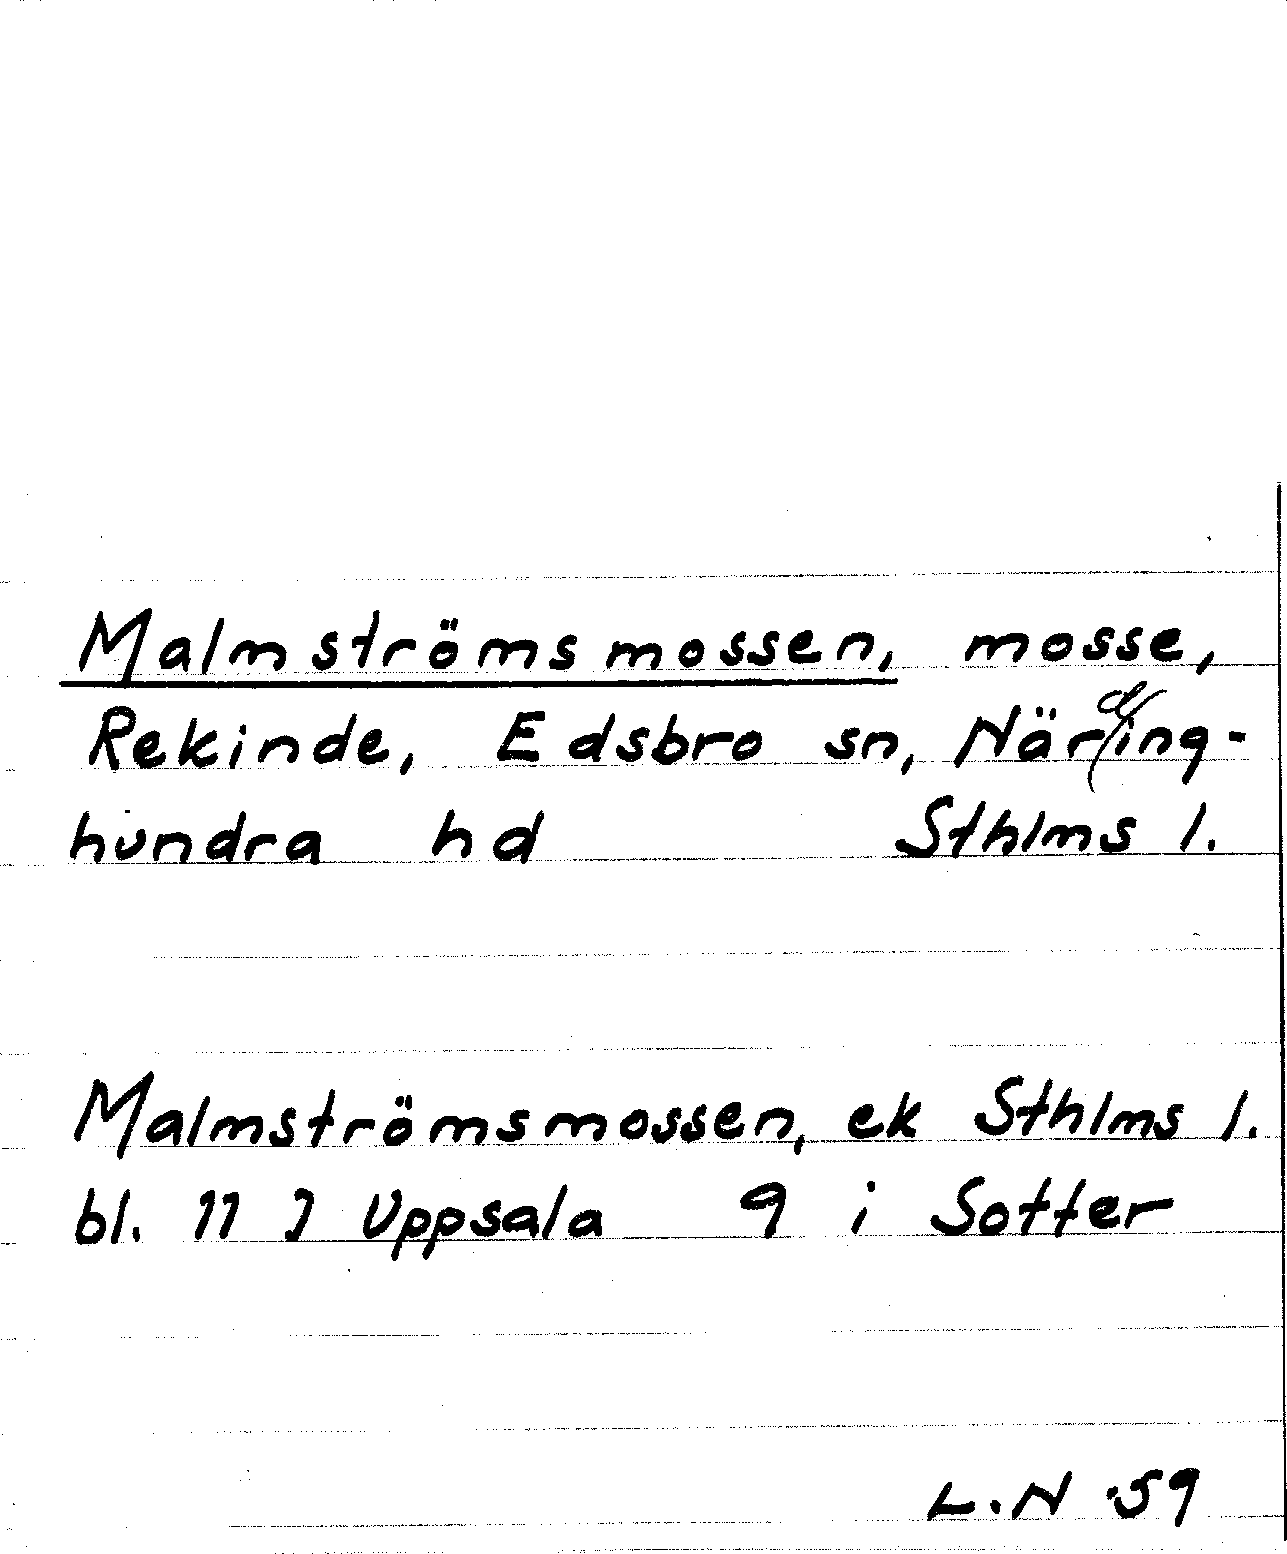 Malmströmsmossen, mosse,
Rekinde, Edsbro sn, Närding-
hundra hd Sthlms l.
Malmströmsmossen, ek Sthlms l.
bl. 11 J Uppsala 9 i Sotter
L.N. 59